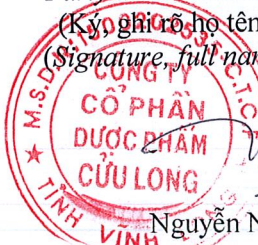 (Ký, ghi rõ họ tên
(Signature, full nam
M.S.D
C.T.C
CÔNG TY
CỔ PHẦN
DƯỢC PHẨM
CỬU LONG
TỈNH VĨNH
Nguyễn N